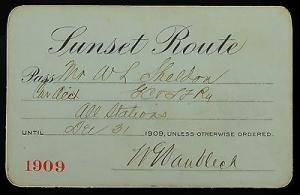 Sunset Route
Pass Mr W L Shelton
Car Acct GC&SF Ry
All Stations
UNTIL Dec 31 1909, UNLESS OTHERWISE ORDERED.
1909